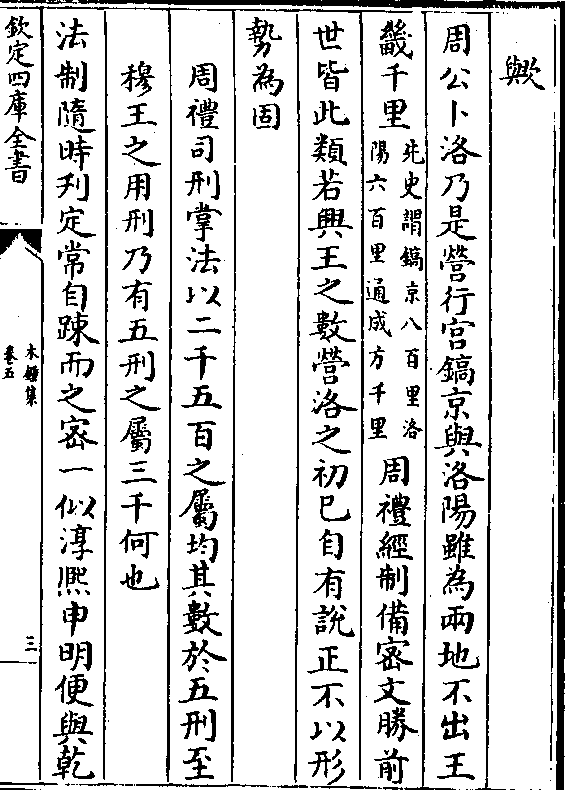 歟
周公卜洛乃是營行宫鎬京與洛陽雖為兩地不出王
畿千里
先史謂鎬京八百里洛
陽六百里通成方千里
周禮經制備密文勝前
世皆此類若興王之數營洛之初已自有說正不以形
勢為固
周禮司刑掌法以二千五百之屬均其數於五刑至
穆王之用刑乃有五刑之屬三千何也
法制隨時刋定常自踈而之密一似淳熈申明便與乾
欽定四庫全書
木鐘集
卷五
三